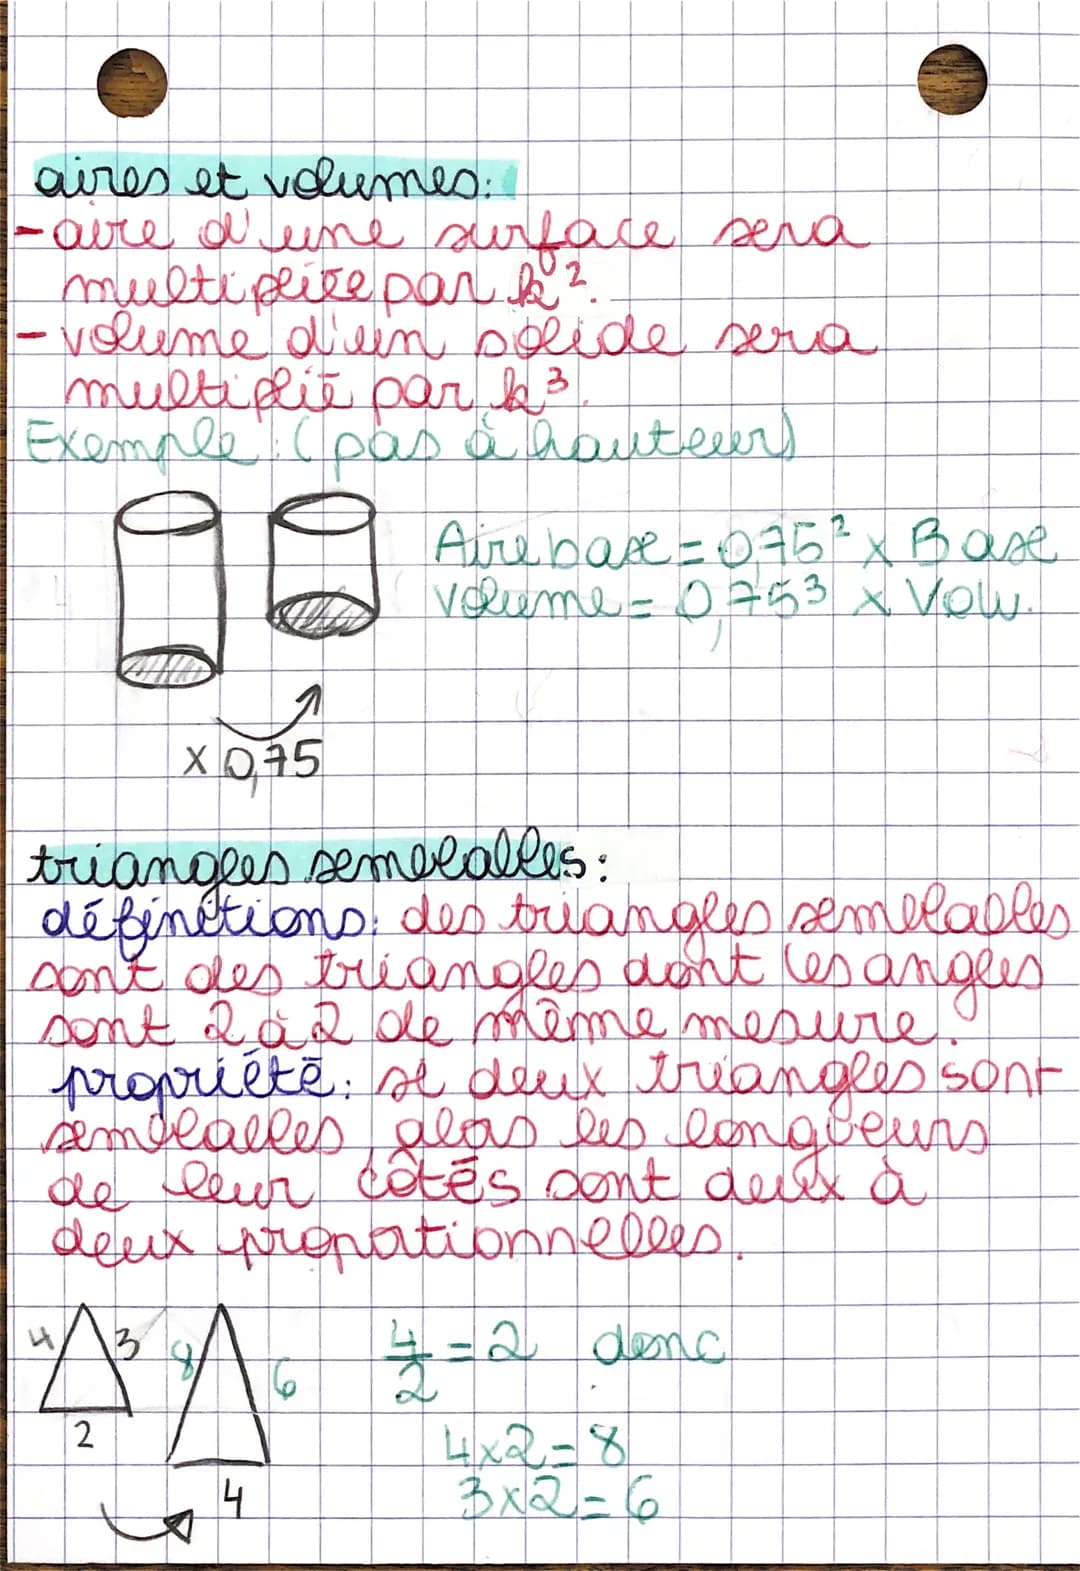 aires et volumes:
- aire d'une surface sera
multipliée par k².
- volume d'un solide sera
multiplié par k³.
Exemple: (pas à hauteur)
Aire base = 0,75² x Base
volume = 0,753 x Volu.
x 0,75
triangles semblables:
définitions: des triangles semblables
sont des triangles dont les angles
sont 2 à 2 de même mesure.
propriété: si deux triangles sont
semblables, alors les longueurs
de leur côtés sont deux à
deux proportionnelles.
4 3 8 6 4/2 = 2 donc
2
4x2=8
4 3x2=6